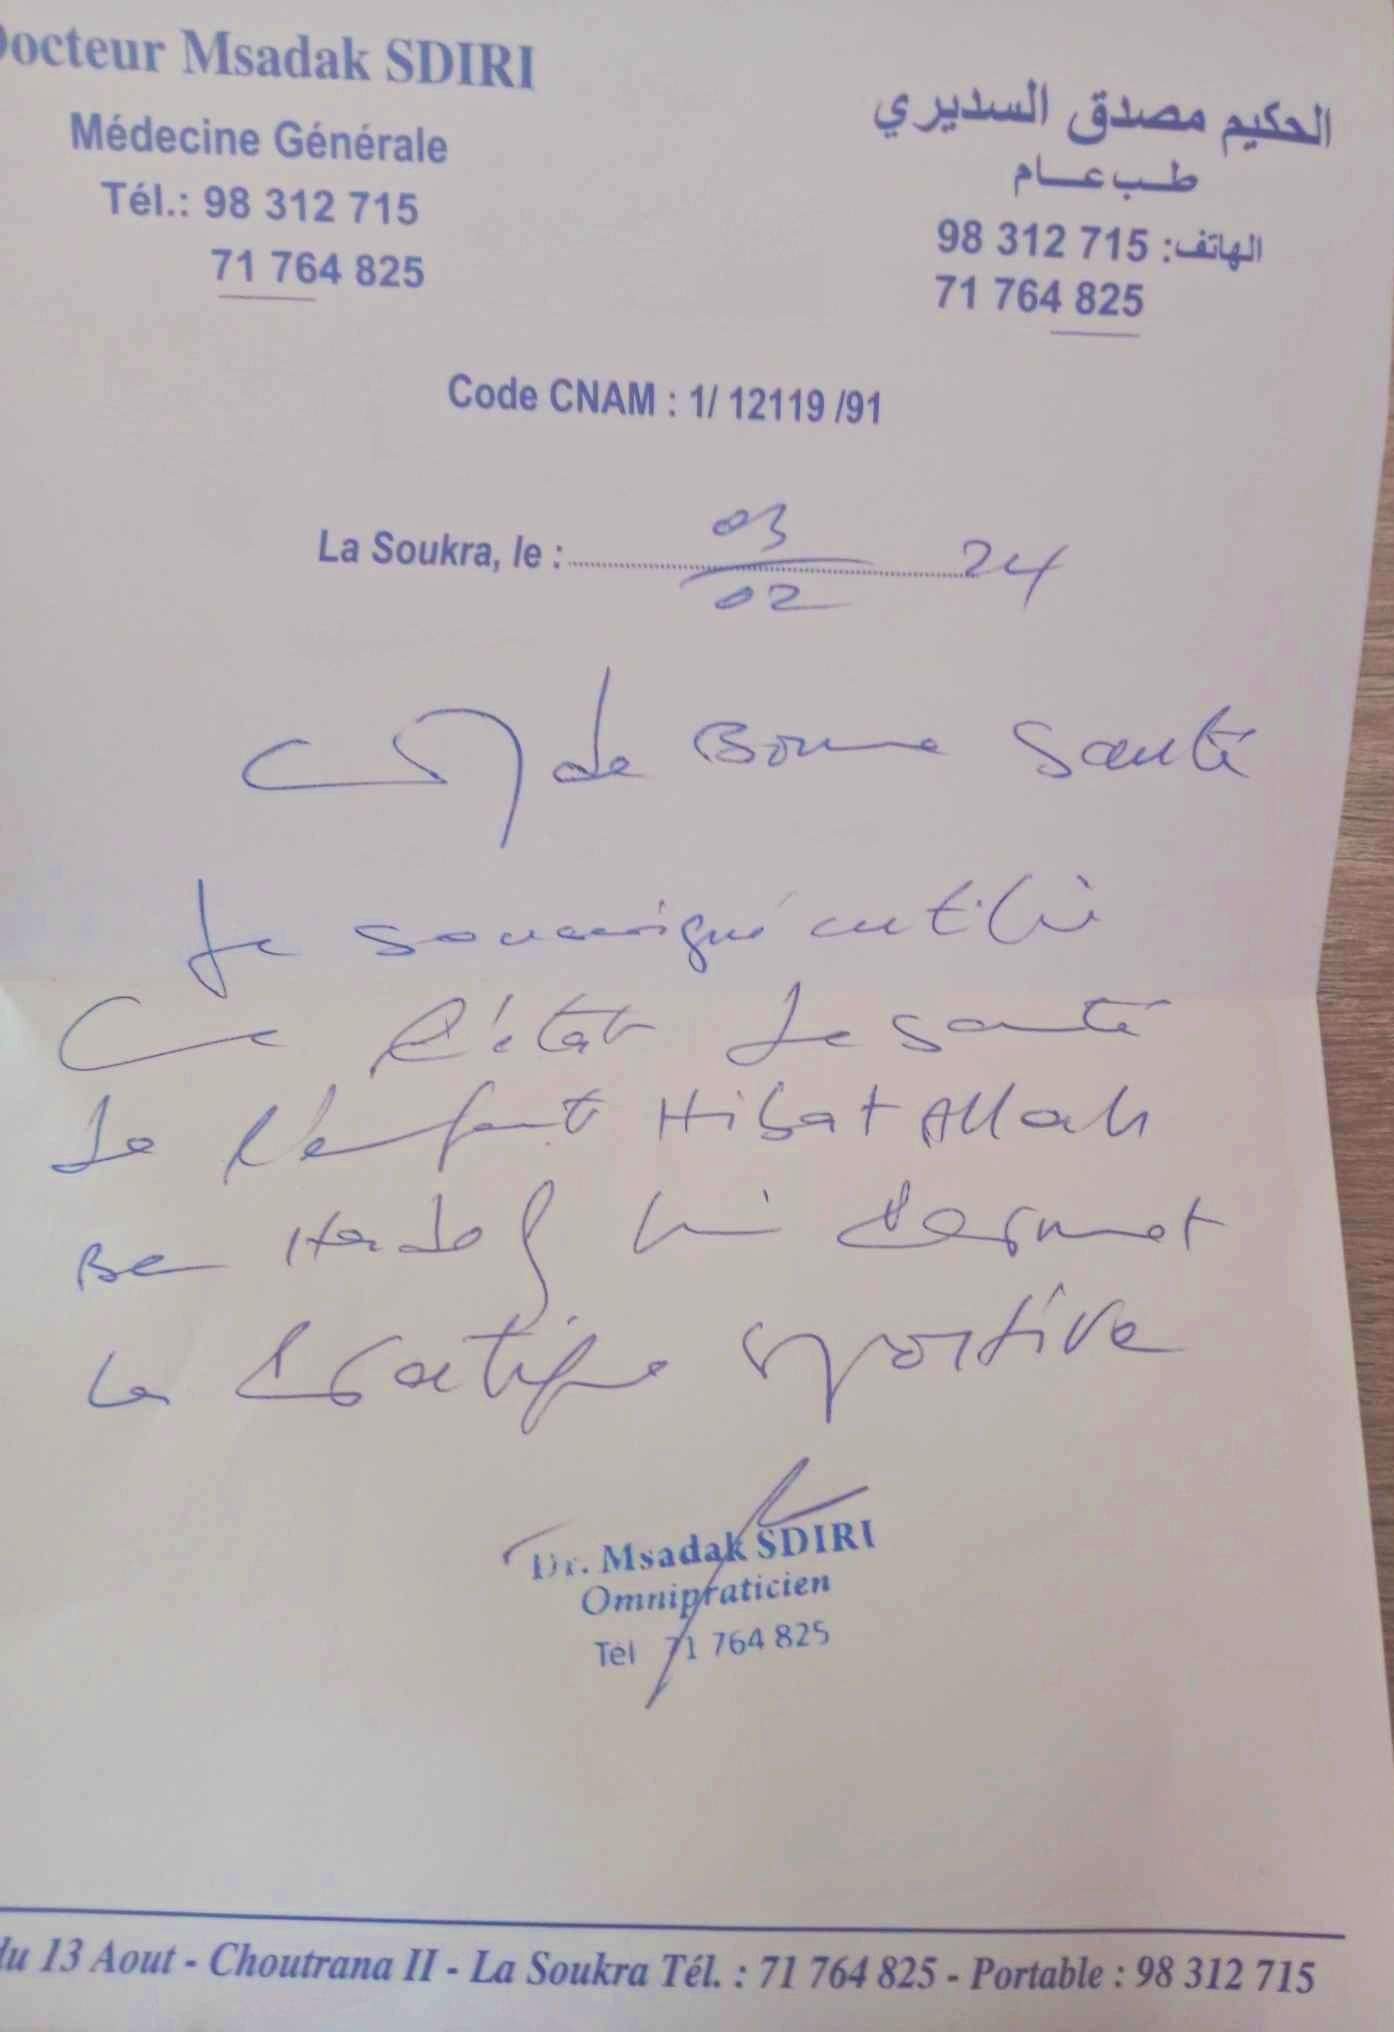 Docteur Msadak SDIRI
Médecine Générale
Tél.: 98 312 715
71 764 825
الحكيم مصدق السديري
طب عام
الهاتف: 98 312 715
71 764 825
Code CNAM : 1/ 12119 /91
La Soukra, le : 03/02 24
de Bonne Santé
Je soussigné certifie
que l'état de santé
de l'enfant Hibat Allah
Ben lui permet
la pratique sportive
Dr. Msadak SDIRI
Omnipraticien
Tél 71 764 825
du 13 Aout - Choutrana II - La Soukra Tél. : 71 764 825 - Portable : 98 312 715